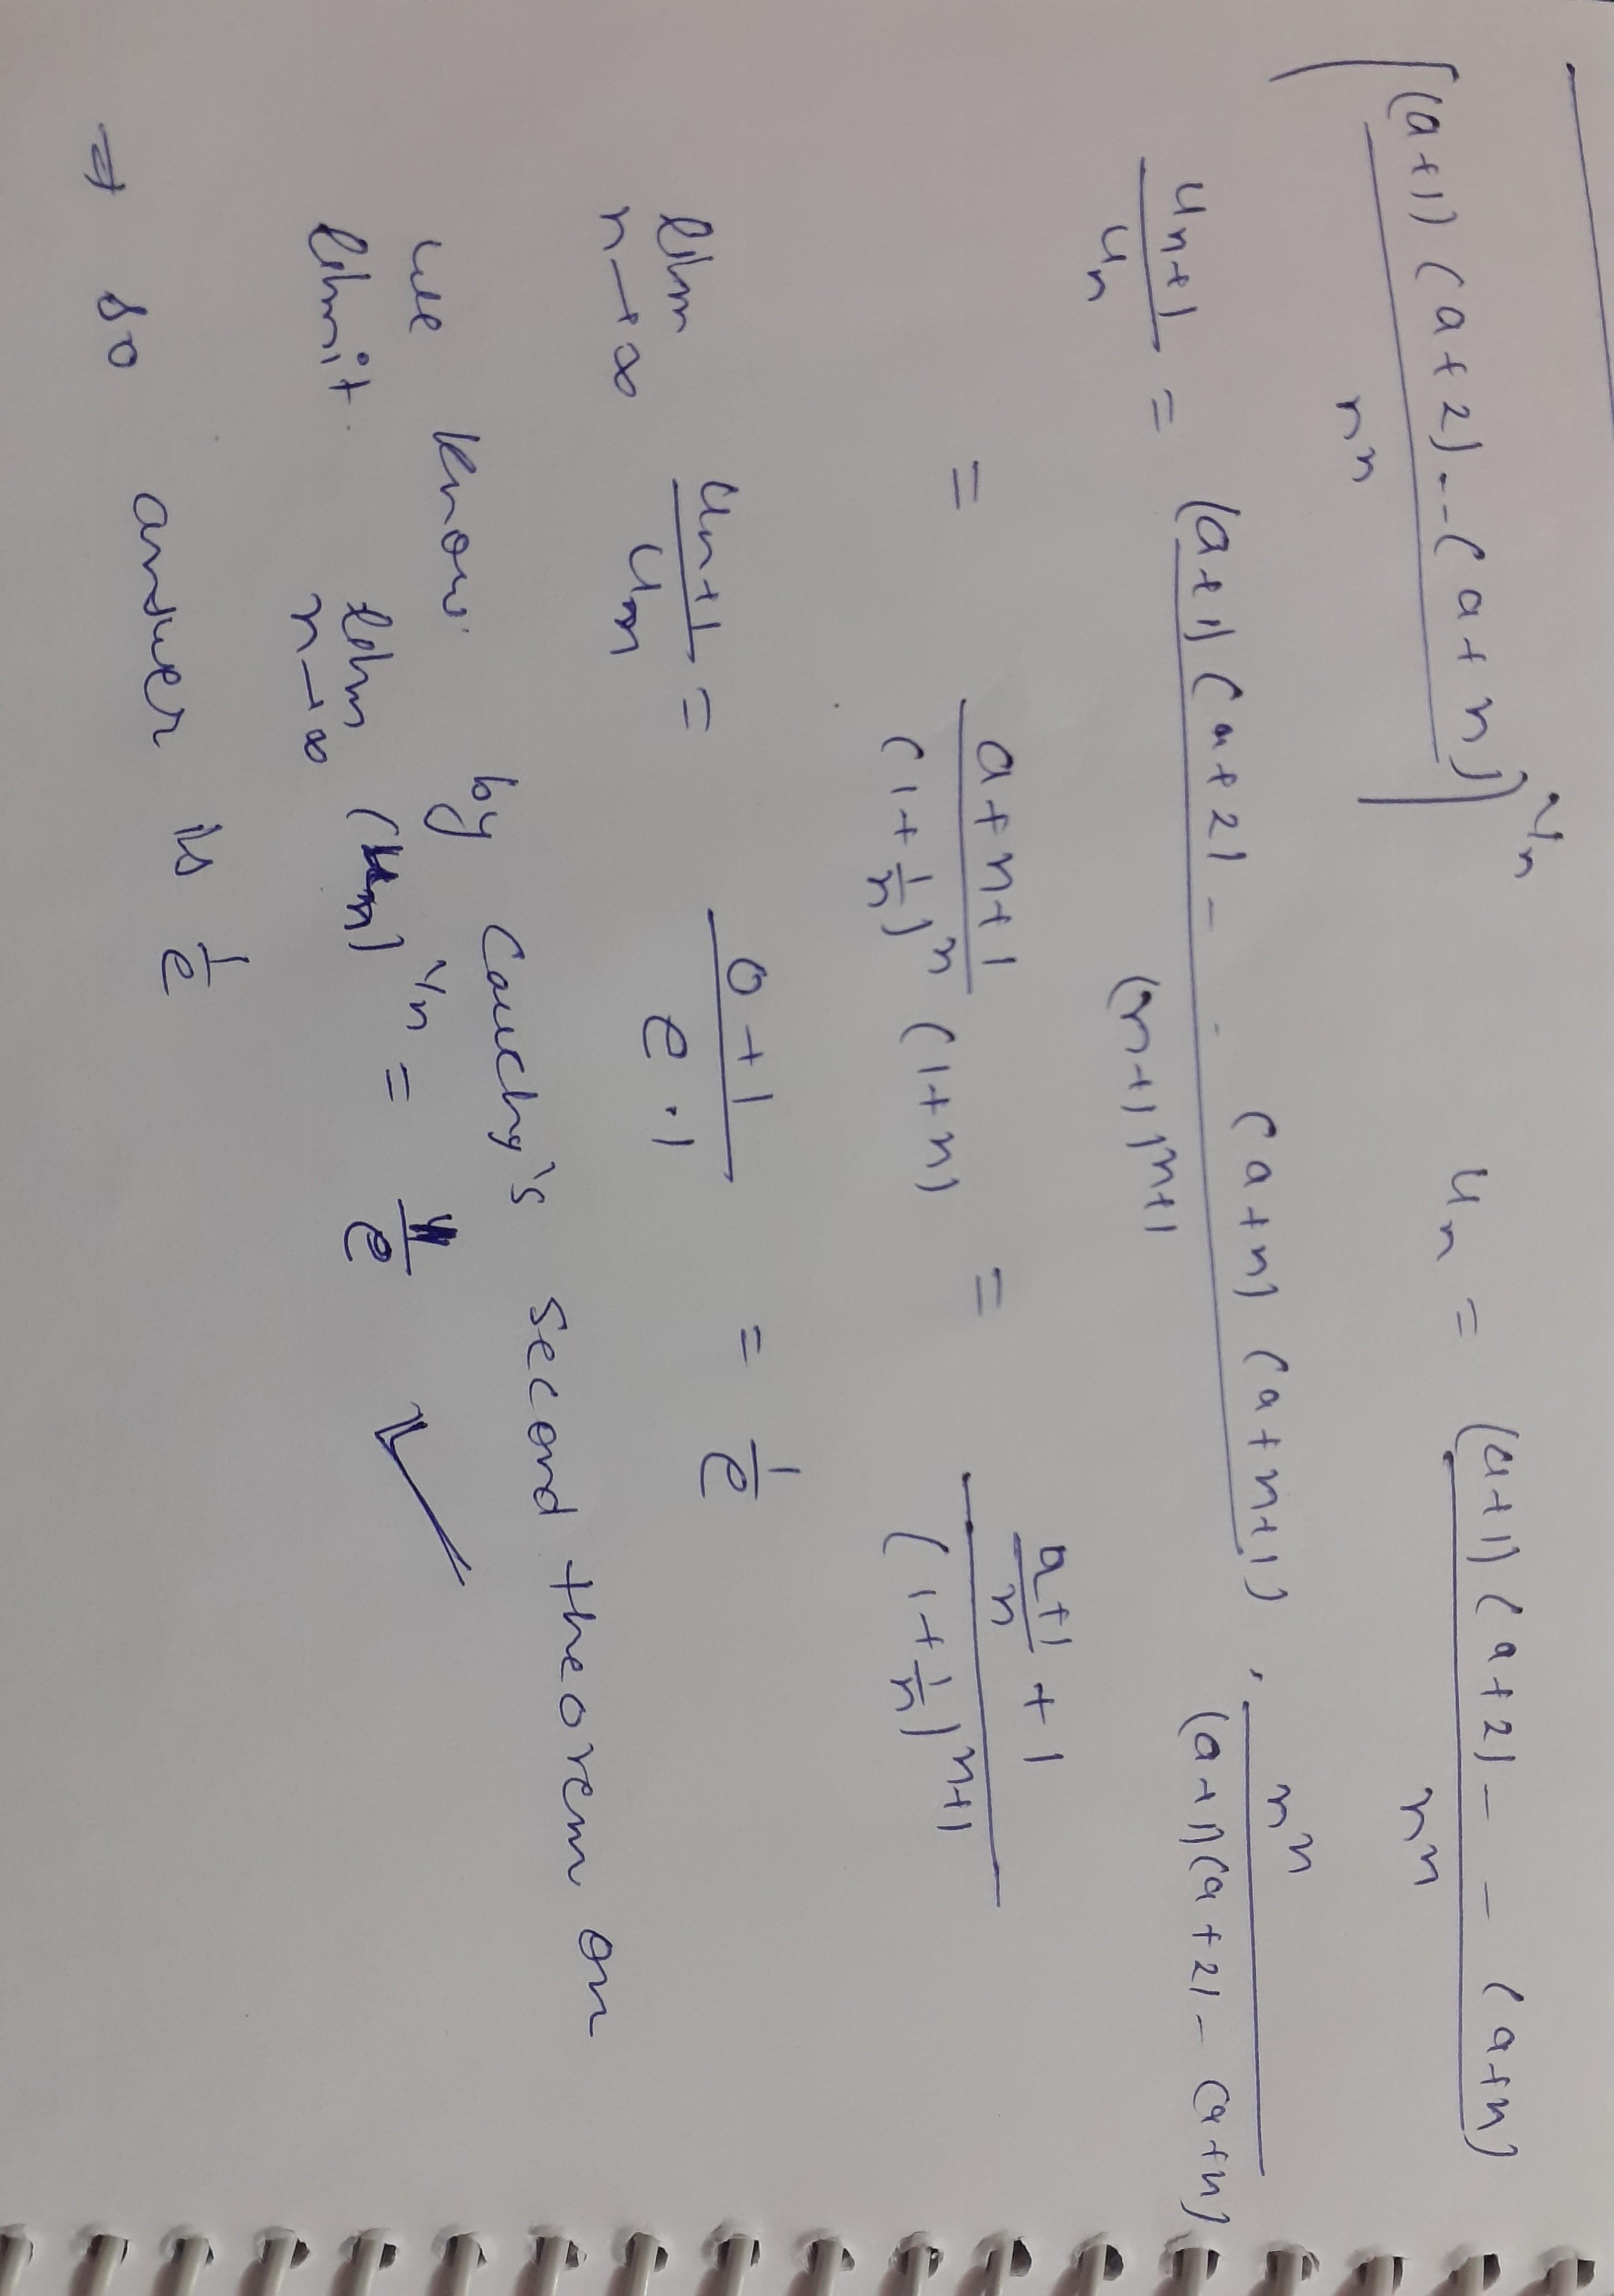 [(a+1)(a+2)...(a+n) / nⁿ]^{1/n}    uₙ = (a+1)(a+2) - - (a+n) / nⁿ
uₙ₊₁ / uₙ = (a+1)(a+2) - . (a+n)(a+n+1) / (n+1)ⁿ⁺¹ . nⁿ / (a+1)(a+2) - (a+n)
= a+n+1 / (1+1/n)ⁿ (1+n) = (a+1)/n + 1 / (1+1/n)ⁿ⁺¹
lim n→∞ uₙ₊₁ / uₙ = 0+1 / e·1 = 1/e
we know by Cauchy's second theorem on
limit lim n→∞ (uₙ)^{1/n} = 1/e ✓
⇒ so answer is 1/e